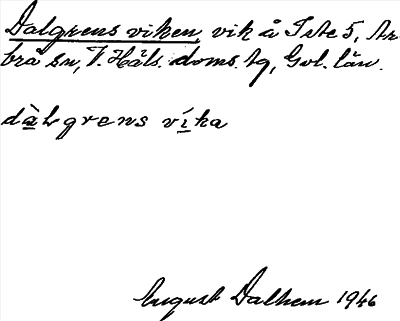 Dalgrens viken, vik å Iste 5, Ar-
brå sn, V. Häls. doms. tg, Gvl. län.
dàlgrens víka
August Dalhem 1946